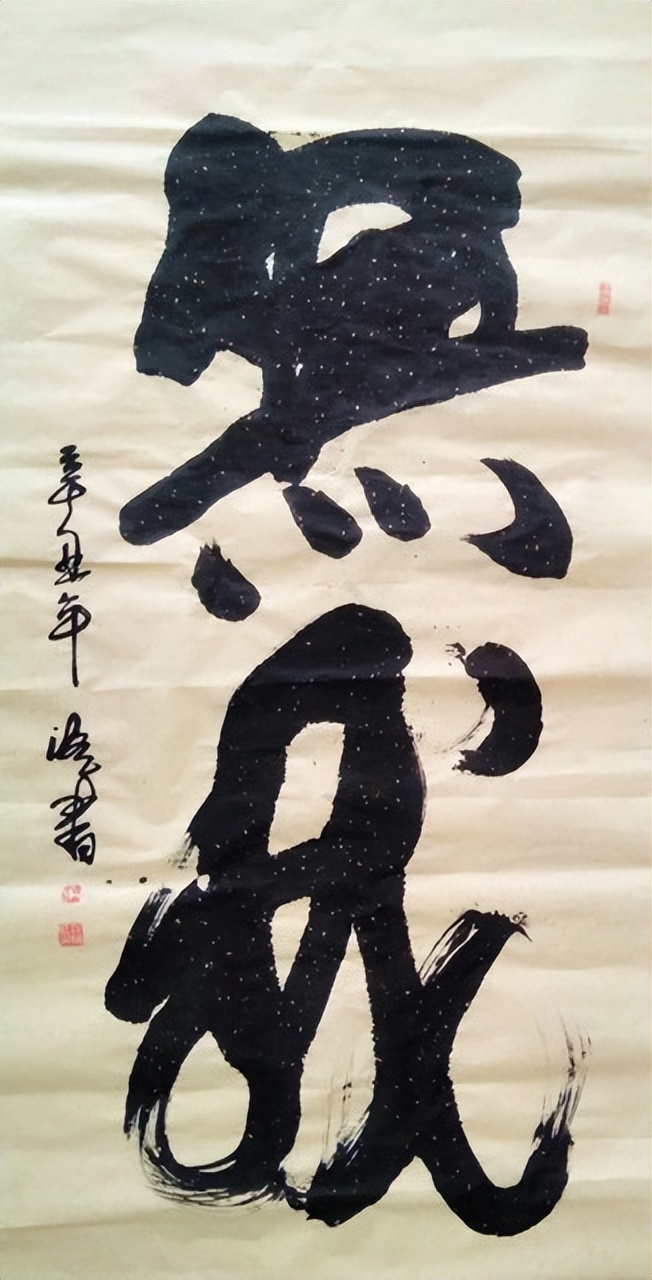 無我
辛丑年 書